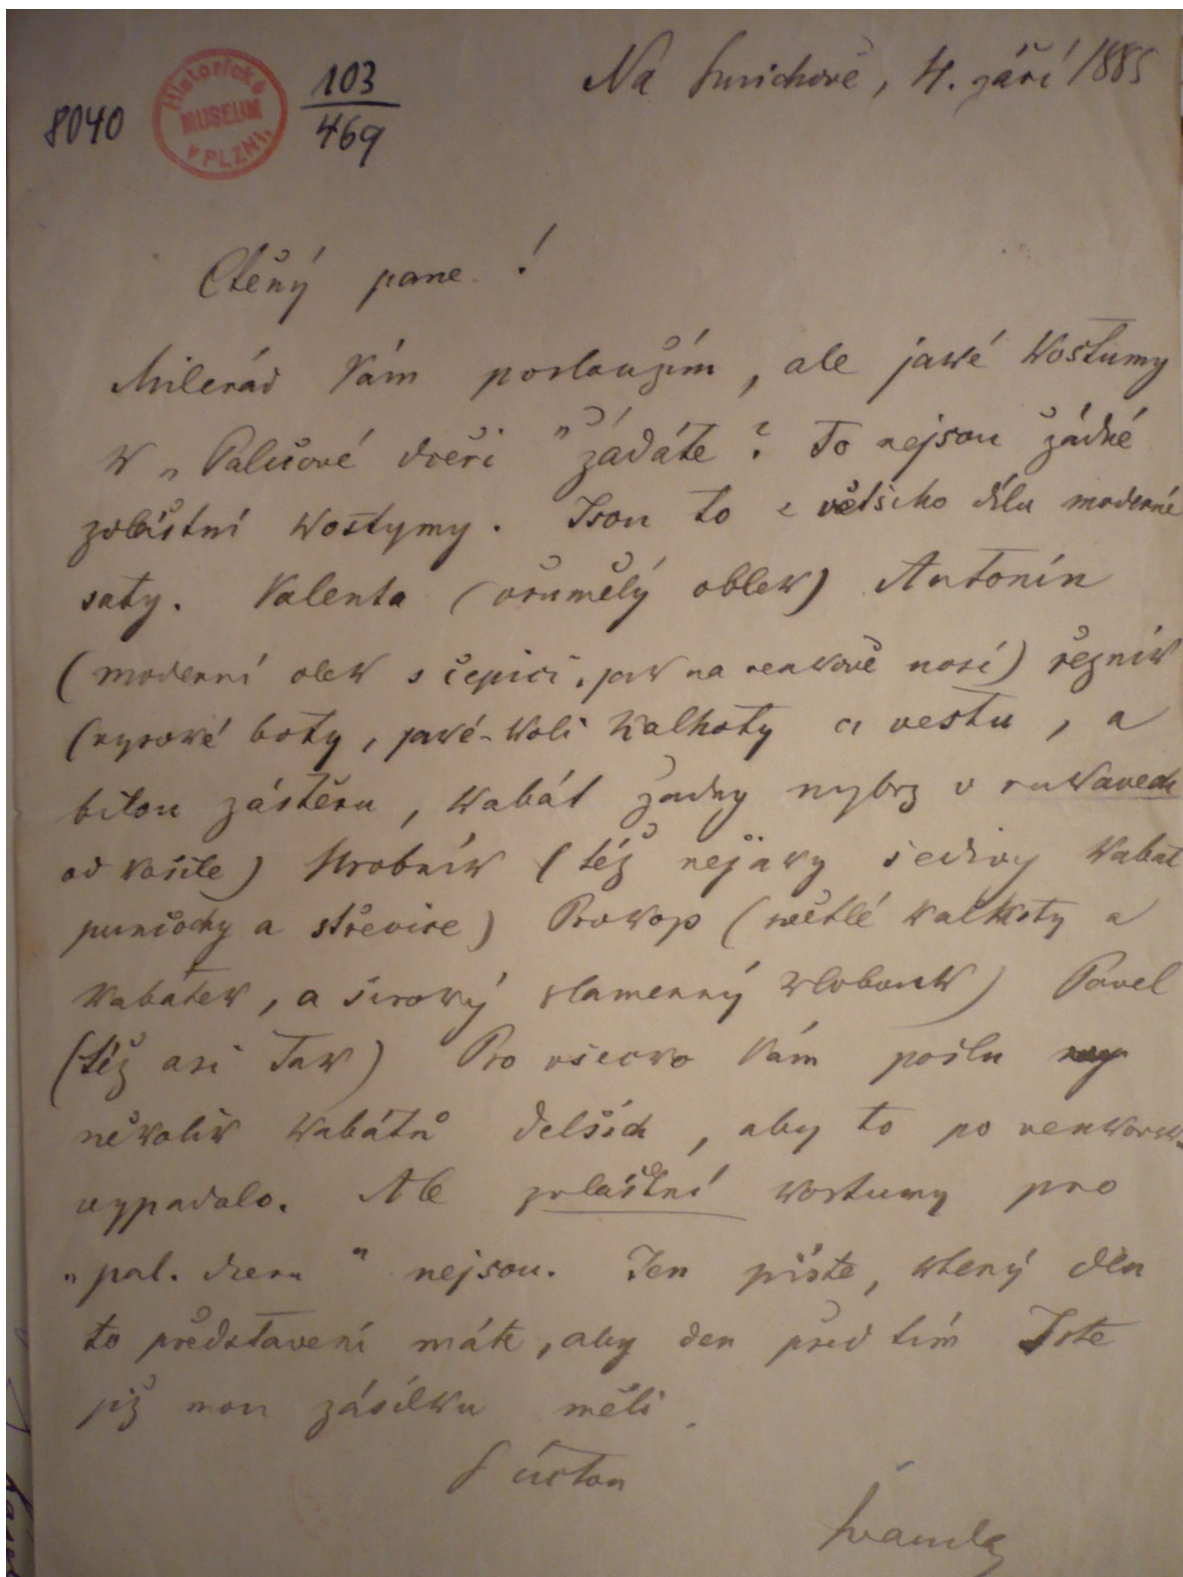 Na Smíchově, 4. září 1885
8040
Historické
MUSEUM
v PLZNI.
103
469
Ctěný pane!
Milerád Vám posloužím, ale jaké kostumy
k „Paličové dceři" žádáte? To nejsou žádné
zvláštní kostymy. Jsou to z většího dílu moderní
saty. Valenta (ošumělý oblek) Antonín
(moderní olek s čepicí, jak na venkově nosí) řezník
(vysoké boty, jaké-koli kalhoty a vestu, a
bílou zástěru, kabát žadny nybrz v rukavech
od košile) Hrobník (též nejaky sedivy kabat
punčochy a střevice) Prokop (světlé kalhoty a
kabátek, a široký slamenný klobouk) Pavel
(též asi tak) Pro všecko Vám pošlu
několik kabátů delších, aby to po venkovsku
vypadalo. Ale zvláštní kostumy pro
„pal. dceru" nejsou. Jen pište, který den
to představení máte, aby den před tím Jste
již mou zásilku měli.
S úctou
Švanda